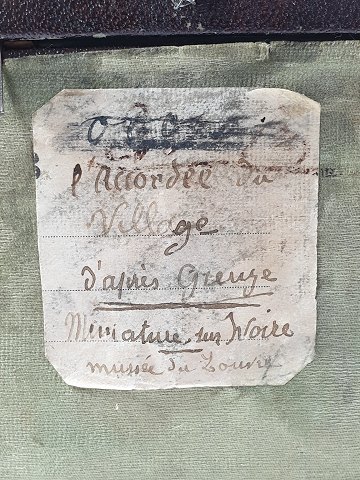 l'Accordée du
Village
d'après Greuze
Miniature sur Ivoire
musée du Louvre